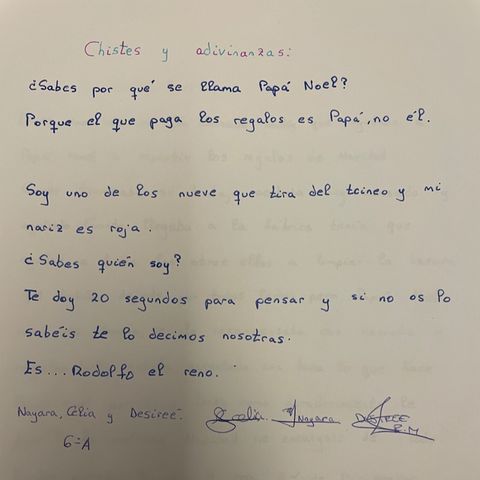 Chistes y adivinanzas:
¿Sabes por qué se llama Papá Noel?
Porque el que paga los regalos es Papá, no él.
Soy uno de los nueve que tira del trineo y mi
nariz es roja.
¿Sabes quién soy?
Te doy 20 segundos para pensar y si no os lo
sabéis te lo decimos nosotras.
Es... Rodolfo el reno.
Nayara, Célia y Desireé.
Celia Nayara DESIREE
R.M
6ºA